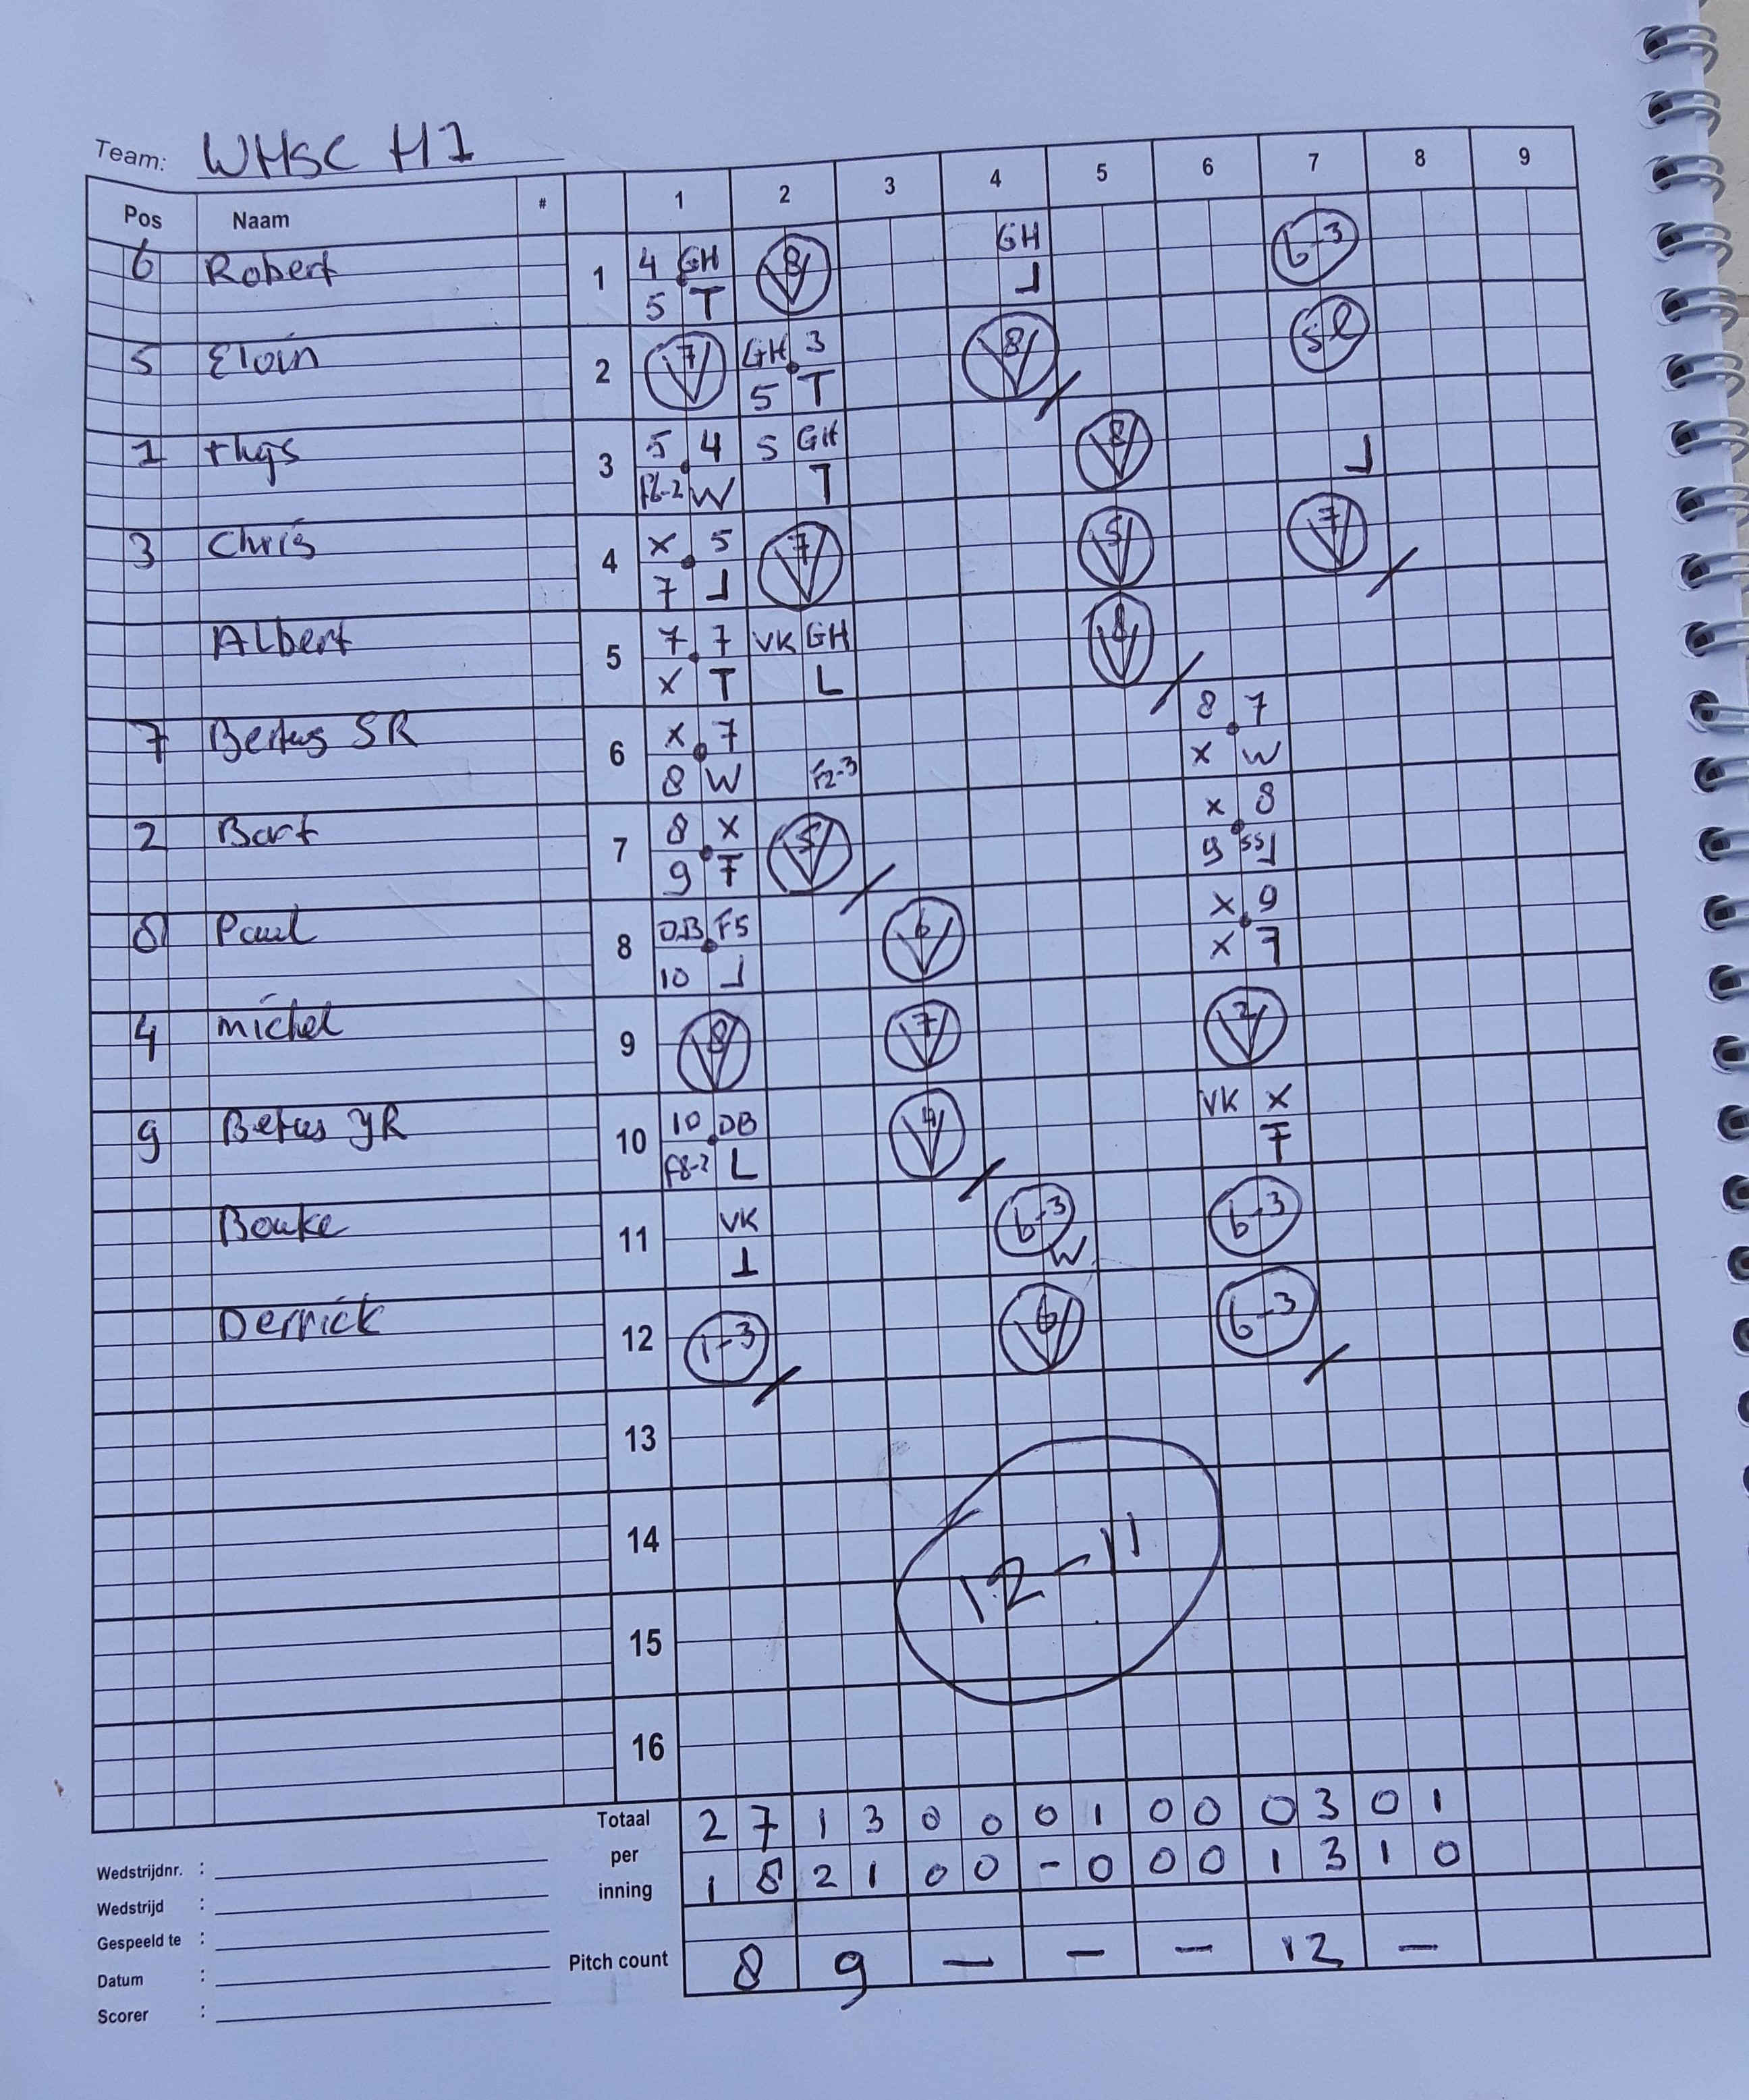 Team: WHSC H1
Pos Naam # 1 2 3 4 5 6 7 8 9
6 Robert 1 4 GH 8 GH 6-3
5 T
5 Eloin 2 7 GH 3 8
5 T
1 thijs 3 5 4 5 GH 8
W
3 Chris 4 X 5 7 5 7
7
Albert 5 7 7 VK GH
X T L
7 Bertus SR 6 X 7 8 7
8 W F2-3 X W
2 Bart 7 8 X 5 X 8
9 9
8 Paul 8 DB F5 6 X 9
10 X
4 michel 9 8 7 2
9 Betus JR 10 10 DB 4 VK X
F8-2 L
Bouke 11 VK 6-3 6-3
W
Derrick 12 1-3 6 6-3
13
14
12-11
15
16
Totaal 2 7 1 3 0 0 0 1 0 0 0 3 0 1
per
inning 1 8 2 1 0 0 - 0 0 0 1 3 1 0
Pitch count 8 9 - - - 12 -
Wedstrijdnr. :
Wedstrijd :
Gespeeld te :
Datum :
Scorer :